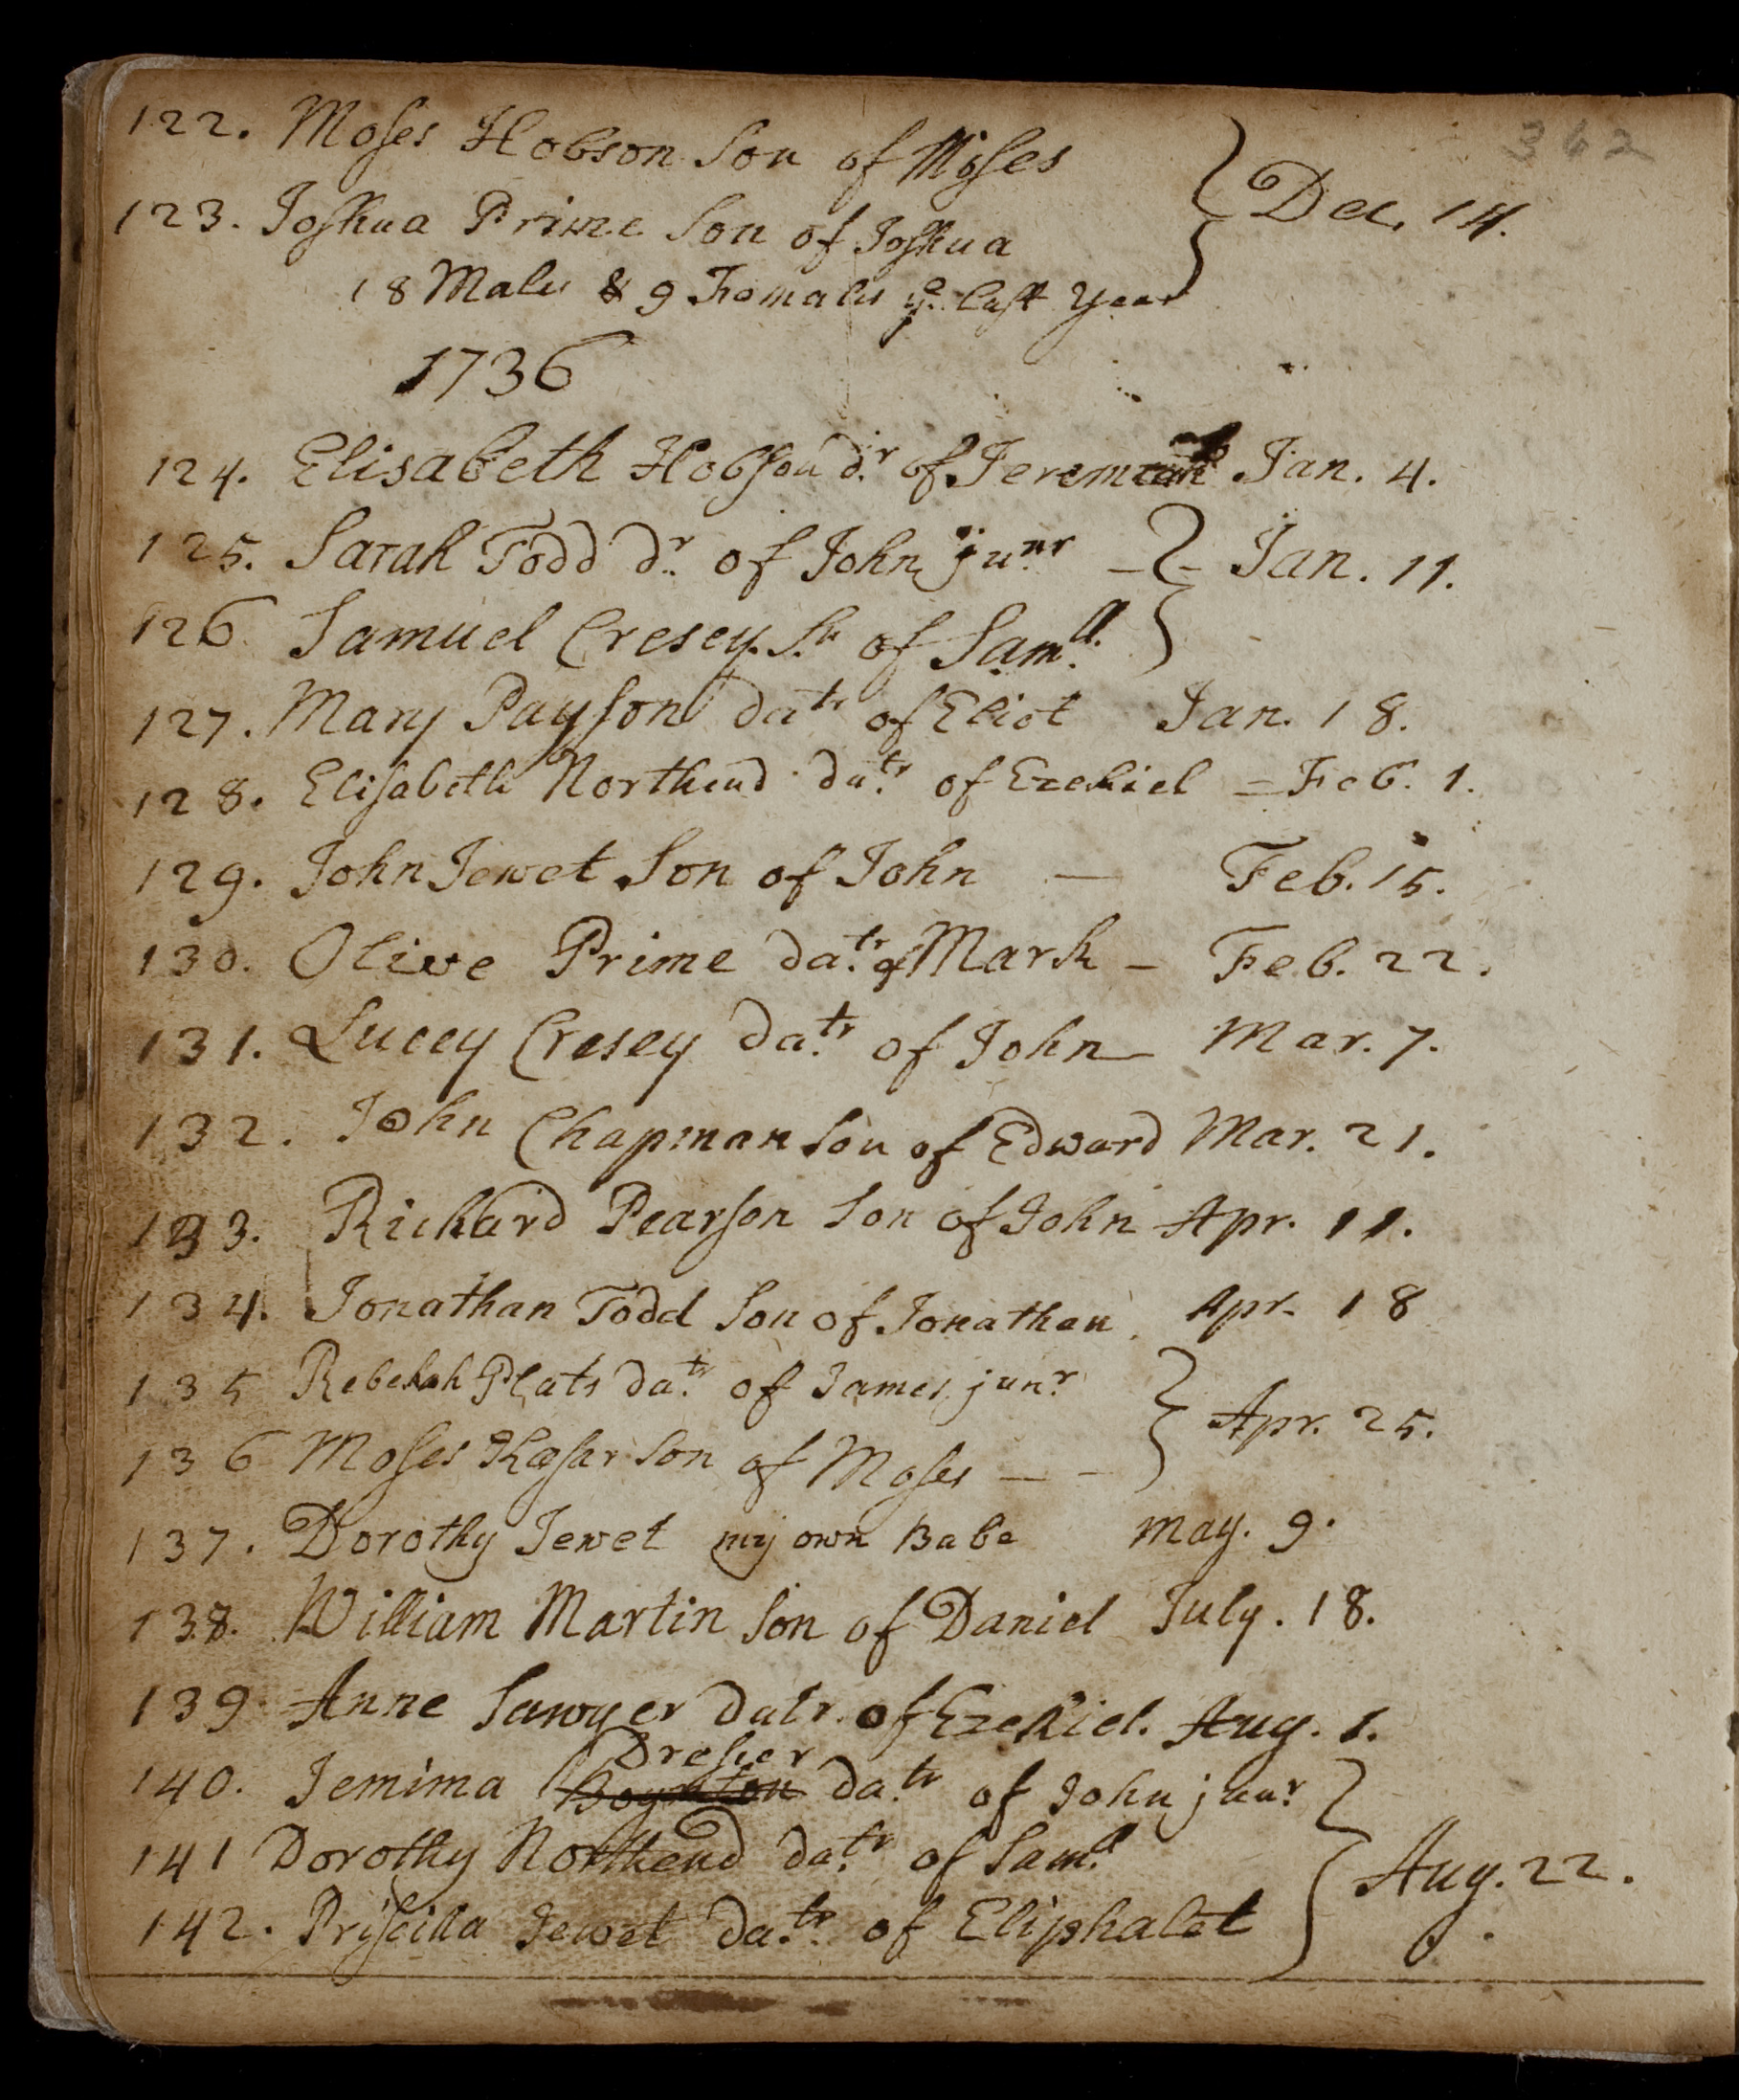 362
122. Moses Hobson Son of Moses } Dec. 14.
123. Joshua Prime Son of Joshua
18 Males & 9 Females ye last Year
1736
124. Elisabeth Hobson dr. of Jeremiah Jan. 4.
125. Sarah Todd dr. of John junr - } - Jan. 11.
126 Samuel Cresey. Sn of Samll.
127. Mary Payson datr of Eliot Jan. 18.
128. Elisabeth Northend datr. of Ezekiel = Feb. 1.
129. John Jewet Son of John — Feb. 15.
130. Olive Prime datr. of Mark - Feb. 22.
131. Lucey Cresey datr. of John - Mar. 7.
132. John Chapman Son of Edward Mar. 21.
133. Richard Pearson Son of John Apr. 11.
134. Jonathan Todd Son of Jonathan. Apr. 18
135 Rebekah Plats datr. of James junr. } Apr. 25.
136 Moses Son of Moses — -
137. Dorothy Jewet my own Babe may. 9.
138. William Martin Son of Daniel July. 18.
139. Anne Sawyer Datr. of Ezekiel. Aug. 1.
Dreser
140. Jemima Boynton datr. of John junr. } Aug. 22.
141 Dorothy Northend datr. of Samll.
142. Priscilla Jewet datr. of Eliphalet